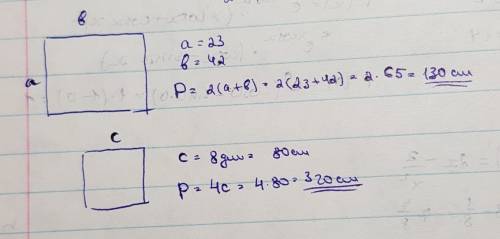 в
a
a = 23
в = 42
P = 2(a+в) = 2(23+42) = 2.65 = 130 cm
c
c = 8дм = 80cm
P = 4c = 4.80 = 320 cm